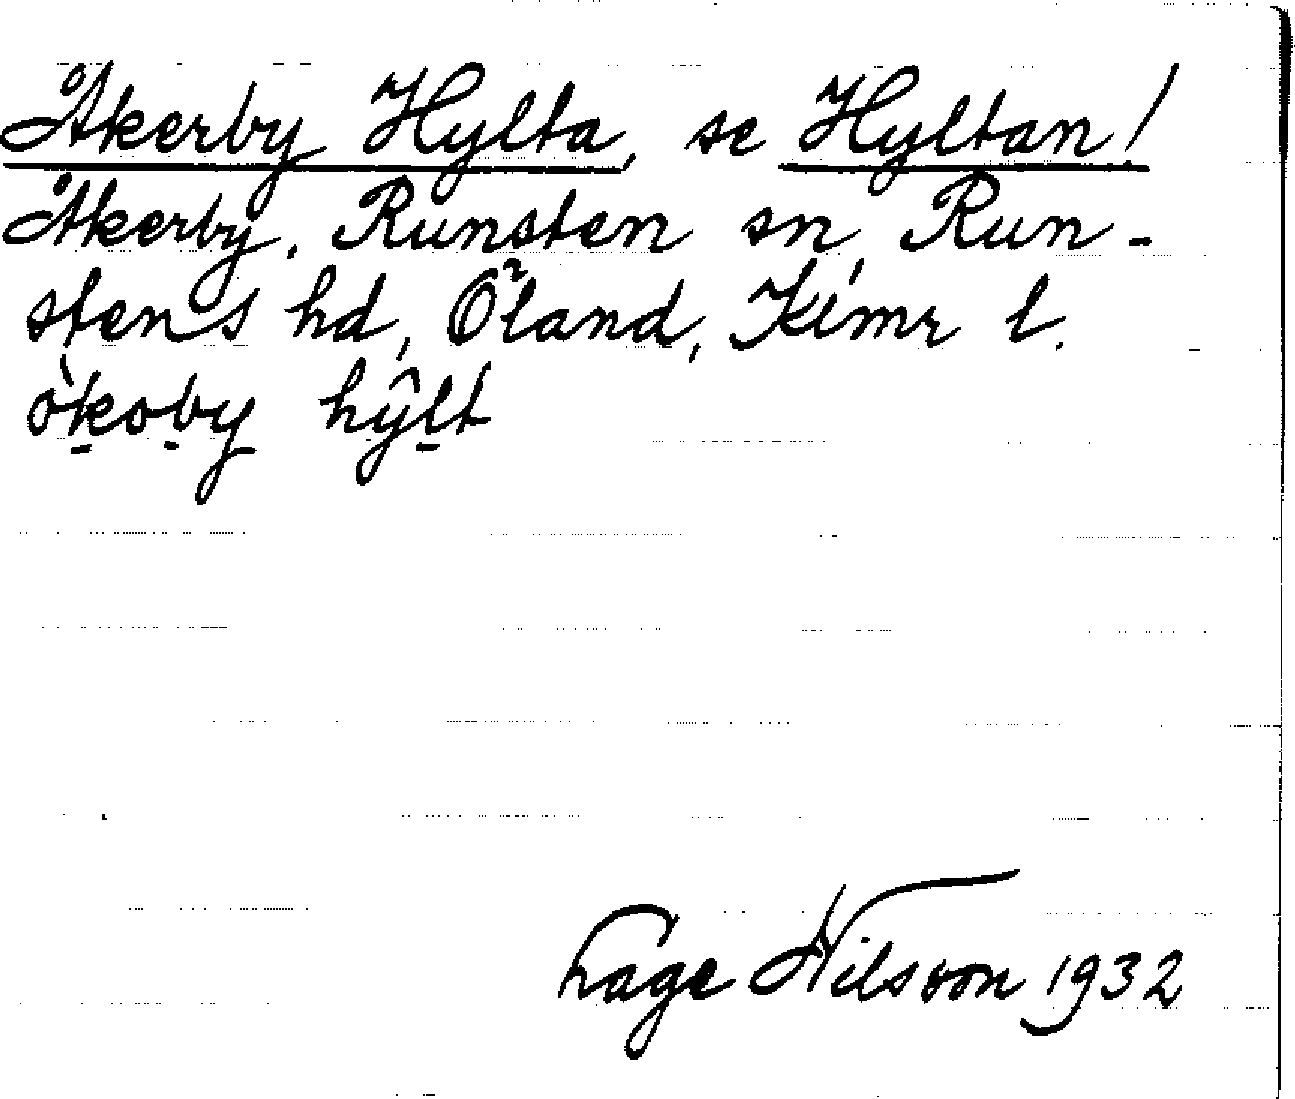 Åkerby Hylta, se Hyltan!
Åkerby, Runsten sn, Run-
stens hd, Öland, Kalmar l.
òkoby hŷlt
Lage Nilsson 1932